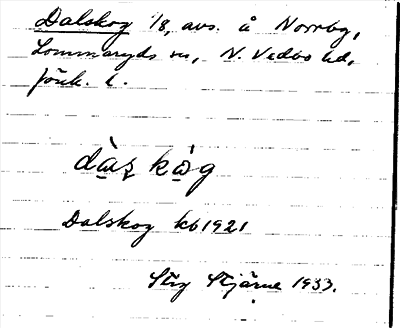 Dalskog 1/8, avs. å Norrby,
Lommaryds sn, N. Vedbo hd,
Jönk. l.
dàɯʂ kɔ̀g
Dalskog kb 1921
Stig Stjärne 1933.